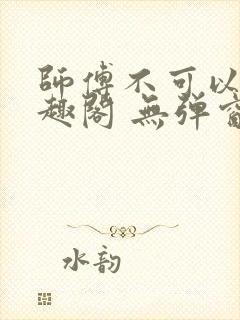 師傅不可以
趣閣 無弹窗
水韵